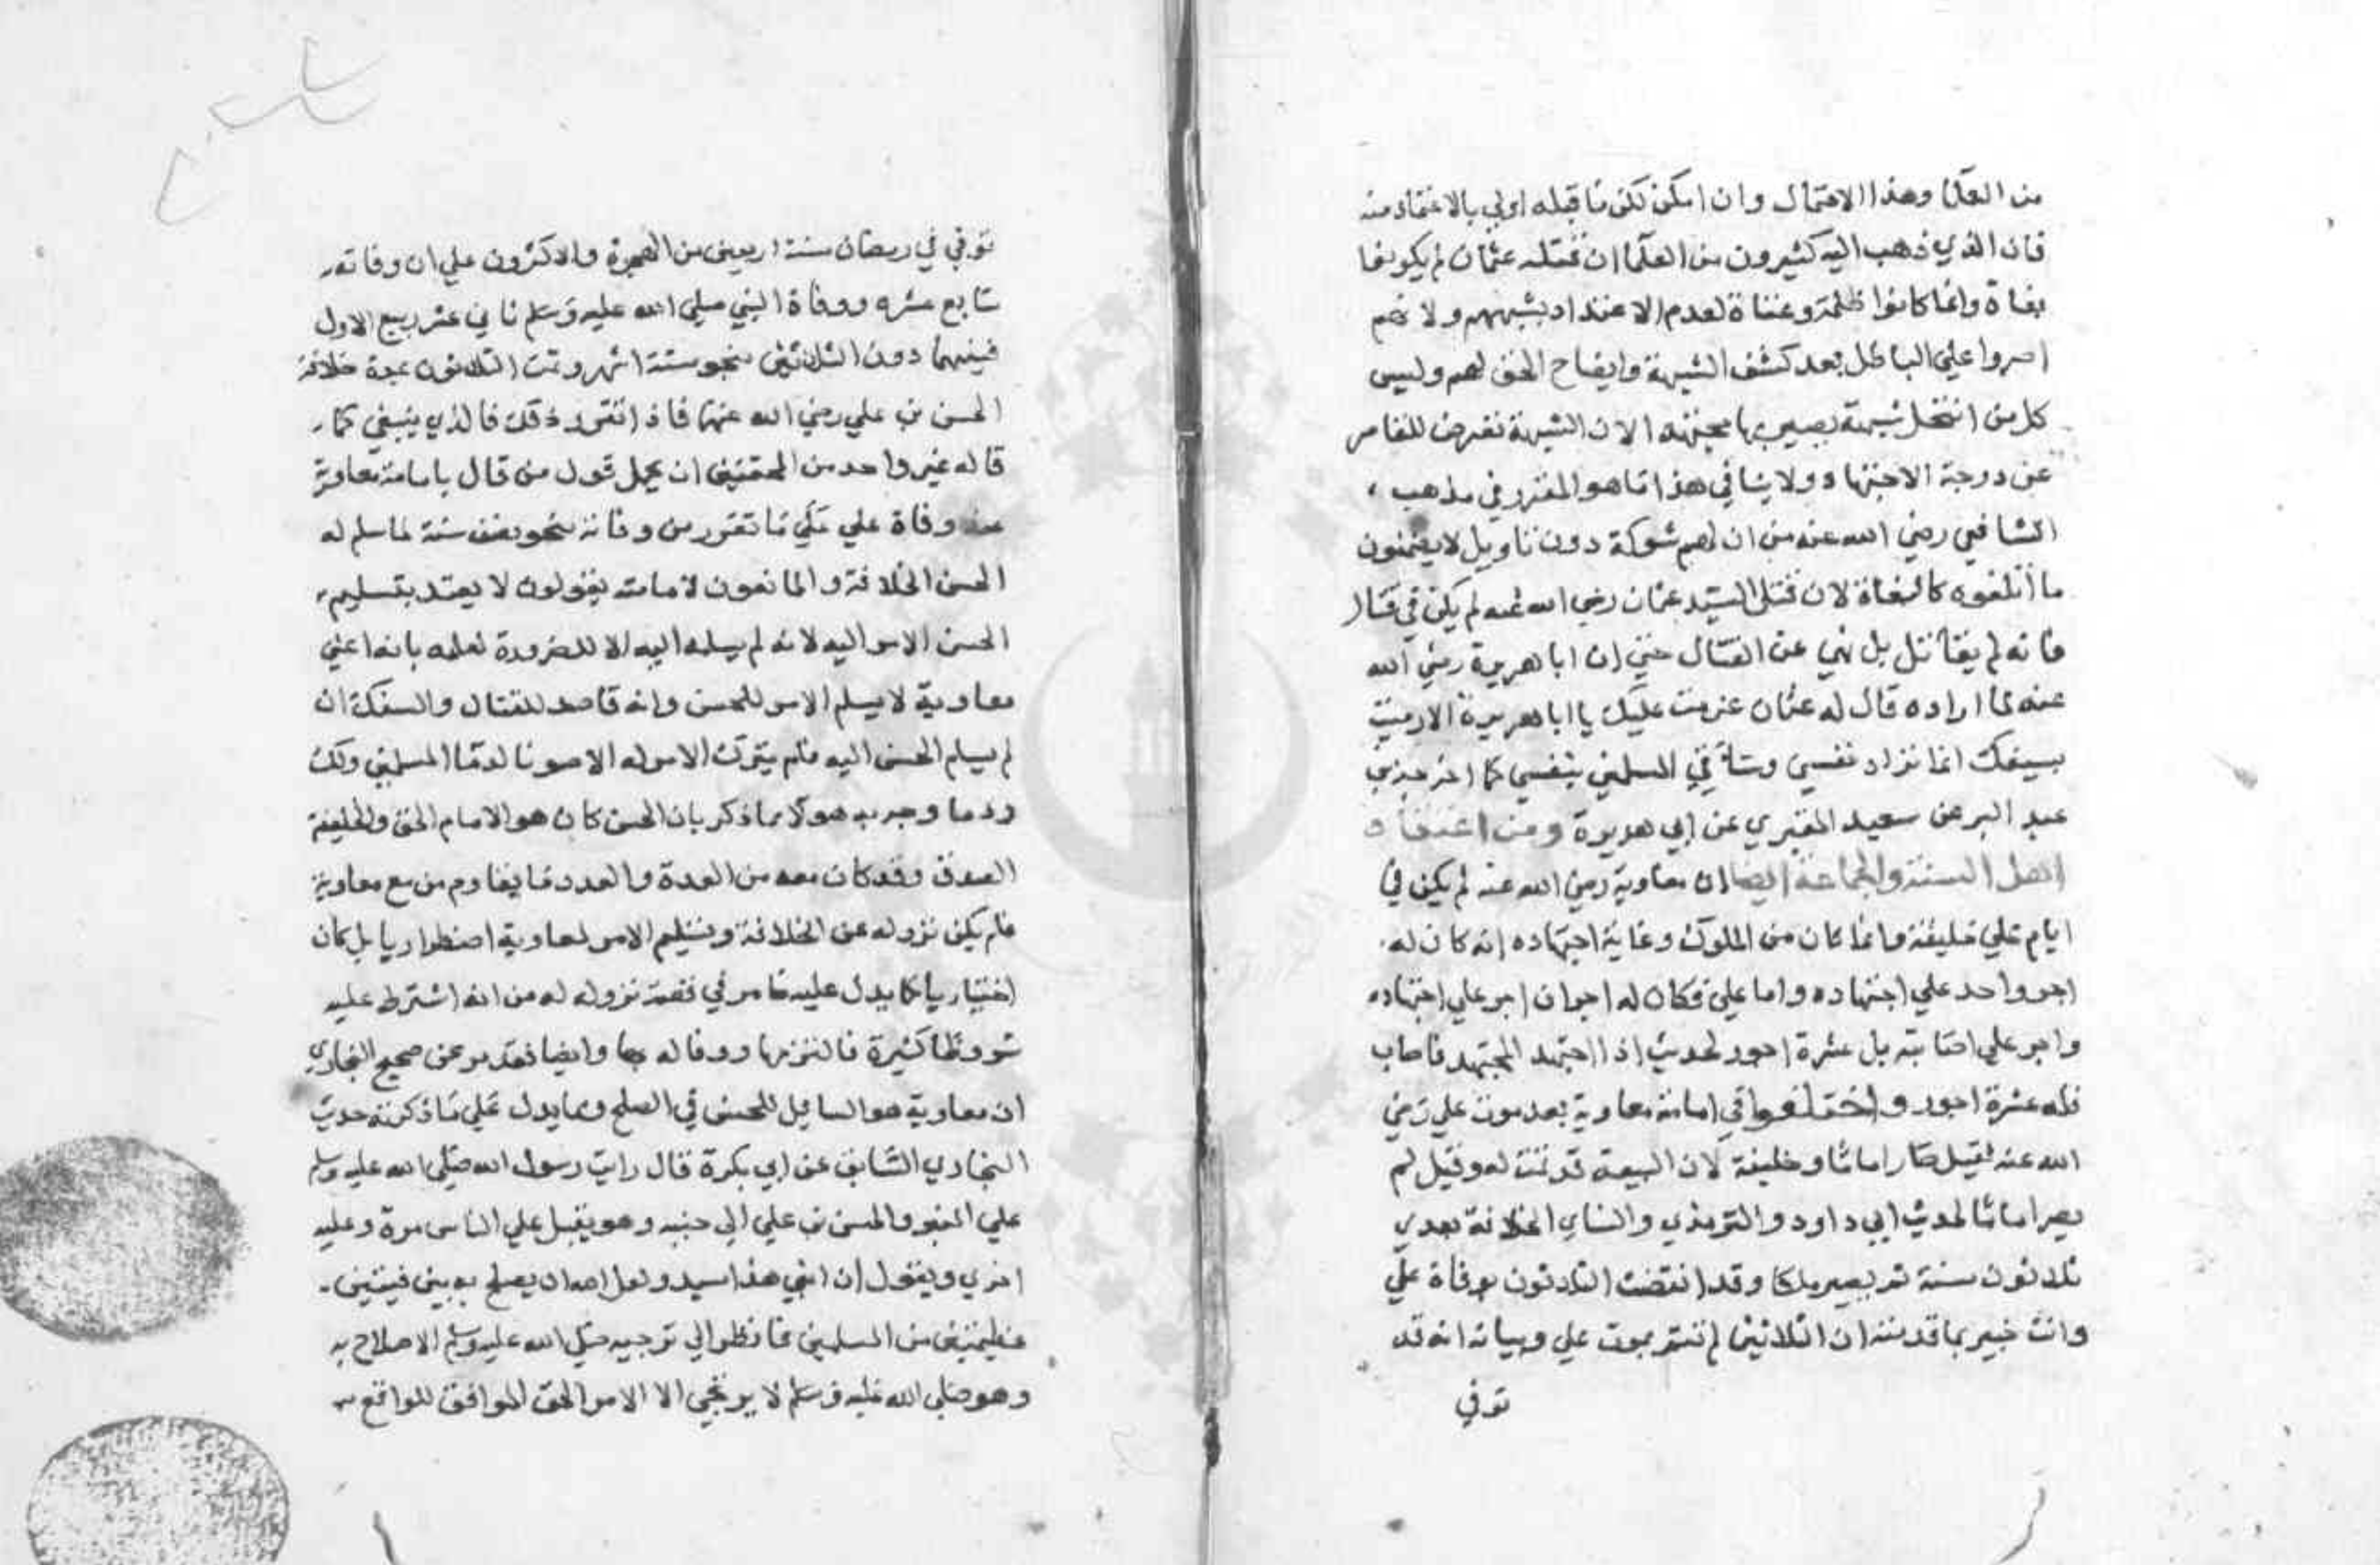 من العلما وهذا الاحتمال وان امكن لكن ما قبله اولي بالاعتماد منه
فان الذي ذهب اليه كثيرون من العلما ان قتلة عثمان لم يكونوا
بغاة وانما كانوا ظلمة وعتاة لعدم الاعتداد بشبههم ولانهم
اصروا علي الباطل بعد كشف الشبهة وايضاح الحق لهم وليس
كل من انتحل شبهة يصير بها مجتهدا لان الشبهة تعرض للقاصر
عن درجة الاجتهاد ولا ينافي هذا ما هو المقرر في مذهب
الشافعي رضي الله عنه من ان لهم شوكة دون تاويل لا يضمنون
ما اتلفوه كالبغاة لان قتل السيد عثمان رضي الله عنه لم يكن في قتال
فانه لم يقاتل بل نهي عن القتال حتي ان ابا هريرة رضي الله
عنه لما اراده قال له عثمان عزمت عليك يا ابا هريرة الا رميت
بسيفك انما تراد نفسي وساقي المسلمين بنفسي كما اخرجه بن
عبد البر عن سعيد المقبري عن ابي هريرة ومن اعتقاد
اهل السنة والجماعة ايضا ان معاوية رضي الله عنه لم يكن في
ايام علي خليفة وانما كان من الملوك وغاية اجتهاده انه كان له
اجر واحد علي اجتهاده واما علي فكان له اجران اجر علي اجتهاده
واجر علي اصابته بل عشرة اجور لحديث اذا اجتهد المجتهد فاصاب
فله عشرة اجور واختلفوا في امامة معاوية بعد موت علي رضي
الله عنه فقيل صار اماما وخليفة لان البيعة قد تمت له وقيل لم
يصر اماما لحديث ابي داود والترمذي والنساي الخلافة بعدي
ثلاثون سنة ثم يصير ملكا وقد انقضت الثلاثون بوفاة علي
وانت خبير بما قدمته ان الثلاثين لم تتم بموت علي وبيانه انه قد
توفي
توفي في رمضان سنة اربعين من الهجرة والاكثرون علي ان وفاته
سابع عشره ووفاة النبي صلي الله عليه وسلم ثاني عشر ربيع الاول
فبينهما دون الثلاثين بنحو ستة اشهر وتمت الثلاثون بمدة خلافة
الحسن بن علي رضي الله عنهما فاذا تقرر ذلك فالذي ينبغي كما
قاله غير واحد من المحققين ان يحمل قول من قال بامامة معاوية
عند وفاة علي علي ما تقرر من وفاته بنحو نصف سنة لما سلم له
الحسن الخلافة والمانعون لامامته يقولون لا يعتد بتسليم
الحسن الامر اليه لانه لم يسلمه اليه الا للضرورة لعلمه بانه اعني
معاوية لا يسلم الامر للحسن وانه قاصد للقتال والسفك ان
لم يسلم الحسن اليه فلم يترك الامر له الا صونا لدما المسلمين ولك
رد ما وجه به هولا بما ذكر بان الحسن كان هو الامام الحق والخليفة
الصدق وقد كان معه من العدة والعدد ما يقاوم من مع معاوية
فلم يكن نزوله عن الخلافة وتسليم الامر لمعاوية اضطراريا بل كان
اختياريا كما يدل عليه ما مر في قصة نزوله له من انه اشترط عليه
شروطا كثيرة فالتزمها ووفا له بها وايضا فقد مر عن صحيح البخاري
ان معاوية هو السايل للحسن في الصلح ومما يدل علي ما ذكرته حديث
البخاري السابق عن ابي بكرة قال رايت رسول الله صلي الله عليه وسلم
علي المنبر والحسن بن علي الي جنبه وهو يقبل علي الناس مرة وعليه
اخري ويقول ان ابني هذا سيد ولعل الله ان يصلح به بين فيتين
عظيمتين من المسلمين فانظر الي ترجيه صلي الله عليه وسلم الاصلاح به
وهو صلي الله عليه وسلم لا يرتجي الا الامر الحق الموافق للواقع